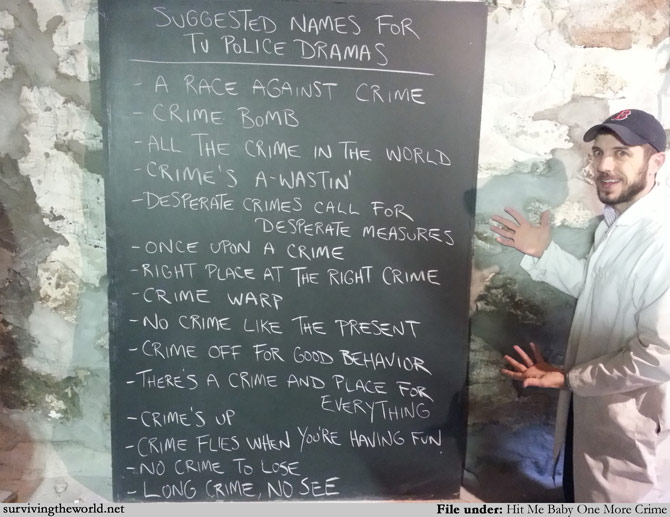 SUGGESTED NAMES FOR
TV POLICE DRAMAS
- A RACE AGAINST CRIME
- CRIME BOMB
- ALL THE CRIME IN THE WORLD
- CRIME'S A-WASTIN'
- DESPERATE CRIMES CALL FOR
DESPERATE MEASURES
- ONCE UPON A CRIME
- RIGHT PLACE AT THE RIGHT CRIME
- CRIME WARP
- NO CRIME LIKE THE PRESENT
- CRIME OFF FOR GOOD BEHAVIOR
- THERE'S A CRIME AND PLACE FOR
EVERYTHING
- CRIME'S UP
- CRIME FLIES WHEN YOU'RE HAVING FUN
- NO CRIME TO LOSE
- LONG CRIME, NO SEE
B
survivingtheworld.net
File under: Hit Me Baby One More Crime